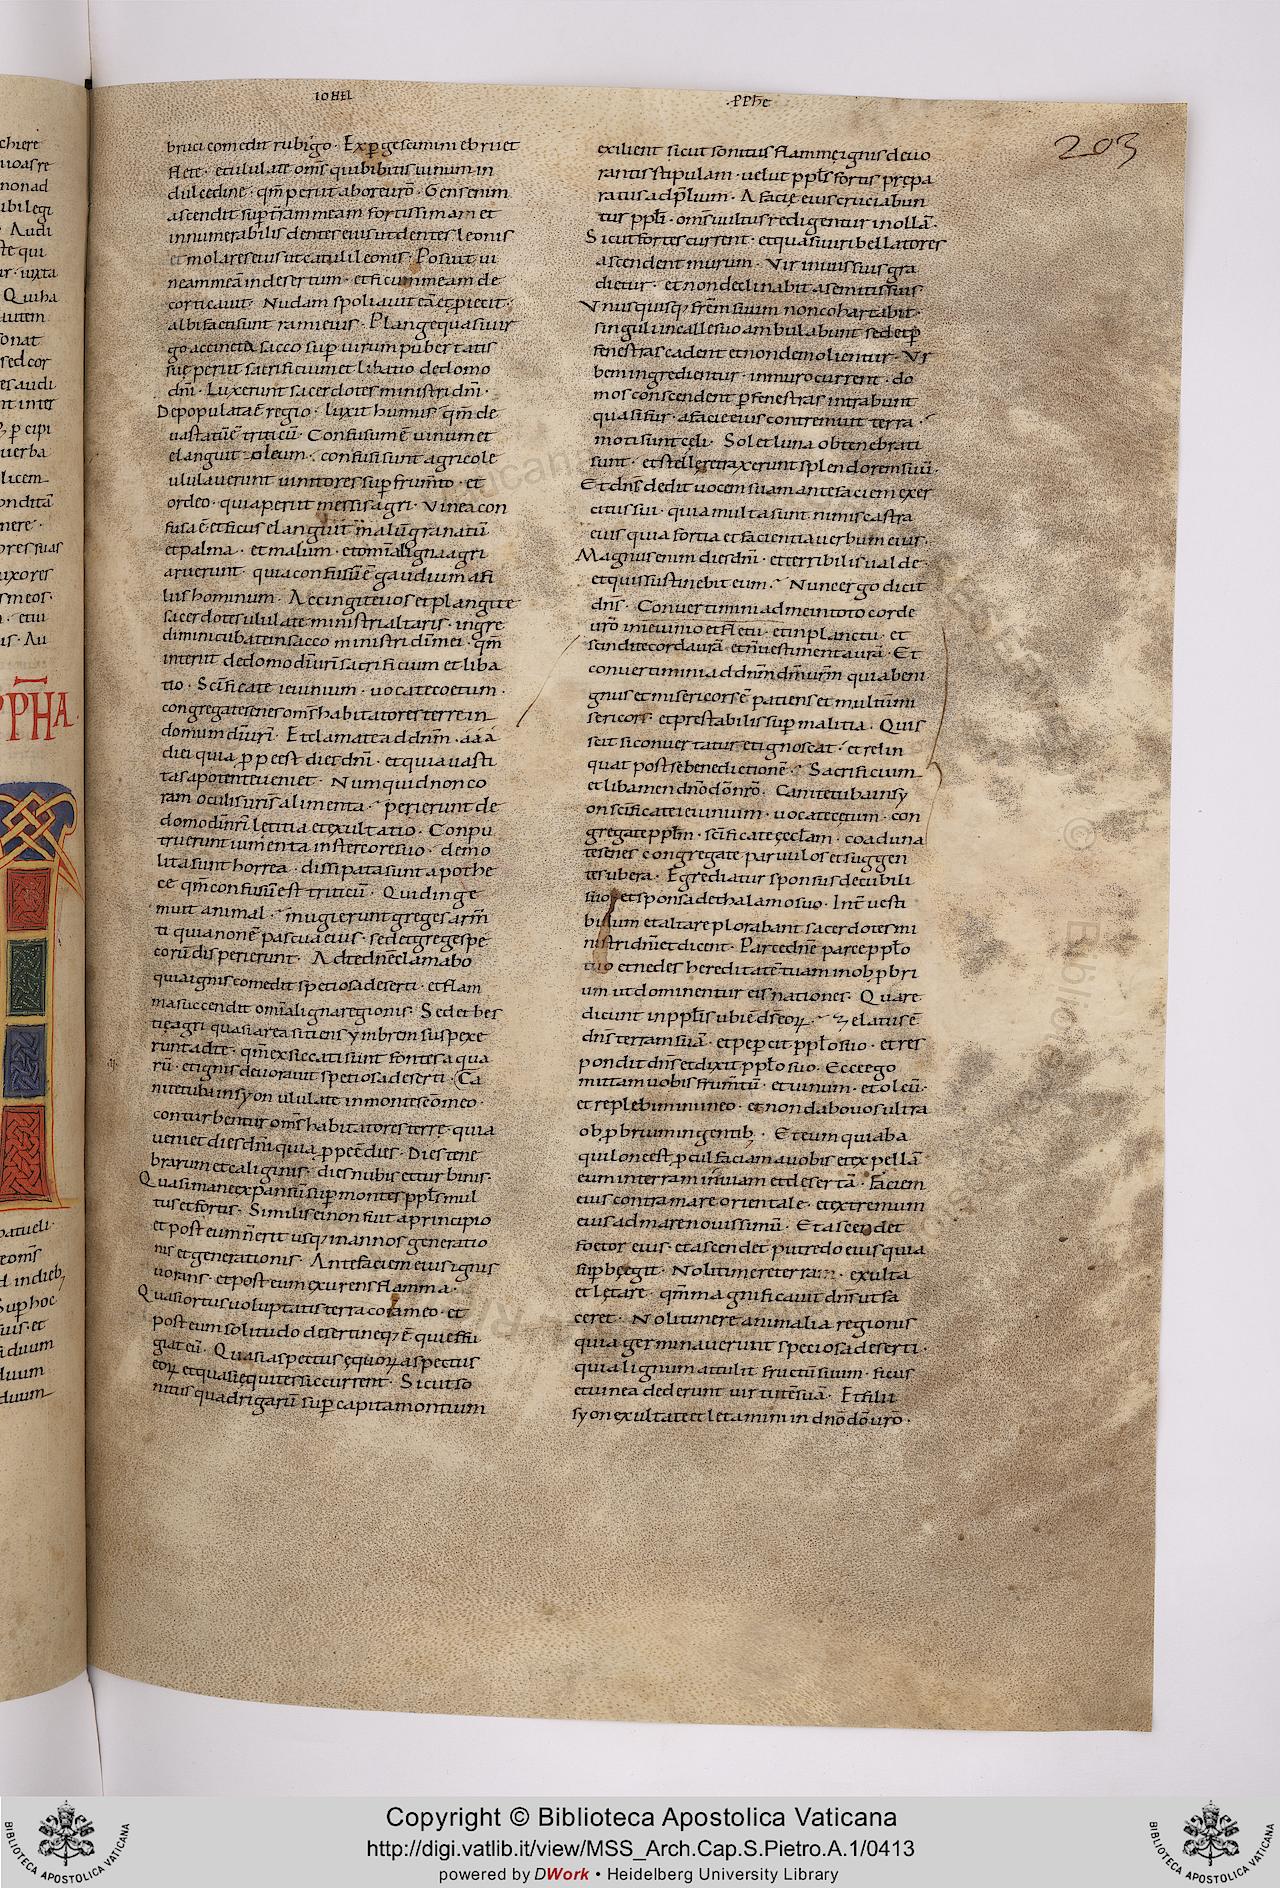 IOHEL
PPHE
203
bruci comedit rubigo · Expgescimini ebrii et
flete · et ululate oms qui bibitis uinum in
dulcedine · qm periit ab ore uro · Gens enim
ascendit sup tram meam fortissima et
innumerabilis dentes eius ut dentes leonis
et molares eius ut catuli leonis · Posuit ui
neam mea in desertum · et ficum meam de
corticauit · Nudam spoliauit ea et piecit ·
albi facti sunt rami eius · Plange quasi uir
go accincta sacco sup uirum pubertatis
sue periit sacrificium et libatio de domo
dni · Luxerunt sacerdotes ministri dni ·
Depopulata e regio · luxit humus · qm de
uastatu e triticu · Confusum e uinum et
elanguit oleum · confusi sunt agricole
ululauerunt uinitores sup frumto · et
ordeo · quia periit messis agri · Vinea con
fusa e et ficus elanguit malu granatu
et palma · et malum · et omia ligna agri
aruerunt · quia confusu e gaudium a fi
liis hominum · Accingite uos et plangite
sacerdotes ululate ministri altaris · ingre
dimini cubate in sacco ministri di mei · qm
interiit de domo di uri sacrificium et liba
tio · Scificate ieiunium · uocate coetum ·
congregate senes oms habitatores terre in
domum di uri · Et clamate ad dnm · a a a
diei quia ppe est dies dni · et quia uasti
tas a potente ueniet · Numquid non co
ram oculis uris alimenta · perierunt de
domo di nri letitia et exultatio · Conpu
truerunt iumenta in stercore suo · demo
lita sunt horrea · dissipata sunt apothe
ce qm confusu est triticu · Quid inge
muit animal · mugierunt greges arm
ti quia non e pascua eius · sed et greges pe
coru disperierunt · Ad te dne clamabo
quia ignis comedit speciosa deserti · et flam
ma succendit omia ligna regionis · Sed et bes
tie agri quasi area sitiens ymbrem suspexe
runt ad te · qm exsiccati sunt fontes aqua
ru · et ignis deuorauit speciosa deserti · Ca
nite tuba in syon ululate in monte sco meo ·
conturbentur oms habitatores terre · quia
uenit dies dni quia ppe e dies · Dies tene
brarum et caliginis · dies nubis et turbinis ·
Quasi mane expansu sup montes ppls mul
tus et fortis · Similis ei non fuit a principio
et post eum n erit usq in annos generatio
nis et generationis · Ante faciem eius ignis
uorans · et post eum exurens flamma ·
Quasi ortus uoluptatis terra cora eo · et
post eum solitudo deserti neq e qui effu
giat eu · Quasi aspectus equoru aspectus
eoru et quasi equites sic current · Sicut so
nitus quadrigaru sup capita montium
exilient sicut sonitus flamme ignis deuo
rantis stipulam · uelut ppls fortis prepa
ratus ad plium · A facie eius cruciabun
tur ppli · oms uultus redigentur in olla ·
Sicut fortes current · et quasi uiri bellatores
ascendent murum · Vir in uiis suis gra
dietur · et non declinabit a semitis suis
Vnusquisq frem suum non cohartabit ·
singuli in calle suo ambulabunt sed et p
fenestras cadent et non demolientur · Vr
bem ingredientur · in muro current · do
mos conscendent p fenestras intrabunt
quasi fur · a facie eius contremuit terra ·
moti sunt celi · Sol et luna obtenebrati
sunt · et stelle retraxerunt splendorem suu ·
Et dns dedit uocem suam ante faciem exer
citus sui · quia multa sunt nimis castra
eius quia fortia et facientia uerbum eius ·
Magnus enim dies dni · et terribilis ualde ·
et quis sustinebit eum · Nunc ergo dicit
dns · Conuertimini ad me in toto corde
uro in ieiunio et fletu · et in planctu · et
scindite corda ura et n uestimenta ura · Et
conuertimini ad dnm dm urm quia beni
gnus et misericors e patiens et multu mi
sericors · et prestabilis sup malitia · Quis
scit si conuertatur et ignoscat · et relin
quat post se benedictione · Sacrificium
et libamen dno do nro · Canite tuba in sy
on scificate ieiunium · uocate cetum · con
gregate pplm · scificate ecclam · coaduna
te senes congregate paruulos et suggen
tes ubera · Egrediatur sponsus de cubili
suo · et sponsa de thalamo suo · Int uesti
bulum et altare plorabant sacerdotes mi
nistri dni et dicent · Parce dne parce pplo
tuo et ne des hereditate tuam in obpbri
um ut dominentur eis nationes · Quare
dicunt in pplis ubi e ds eoru · zelatus e
dns terram sua · et pepercit pplo suo · et res
pondit dns et dixit pplo suo · Ecce ego
mittam uobis frumtu · et uinum · et oleu ·
et replebimini in eo · et non dabo uos ultra
obpbrium in gentib · Et eum qui ab a
quilone est pcul faciam a uobis et expella
eum in terram inuiam et deserta · Faciem
eius contra mare orientale · et extremum
eius ad mare nouissimu · Et ascendet
foetor eius · et ascendet putredo eius quia
supbe egit · Noli timere terra · exulta
et letare · qm magnificauit dns ut fa
ceret · Nolite timere animalia regionis
quia germinauerunt speciosa deserti ·
quia lignum attulit fructu suum · ficus
et uinea dederunt uirtute sua · Et filii
syon exultate et letamini in dno do uro ·
PPHA
Copyright © Biblioteca Apostolica Vaticana
http://digi.vatlib.it/view/MSS_Arch.Cap.S.Pietro.A.1/0413
powered by DWork • Heidelberg University Library
BIBLIOTECA APOSTOLICA VATICANA
BIBLIOTECA APOSTOLICA VATICANA